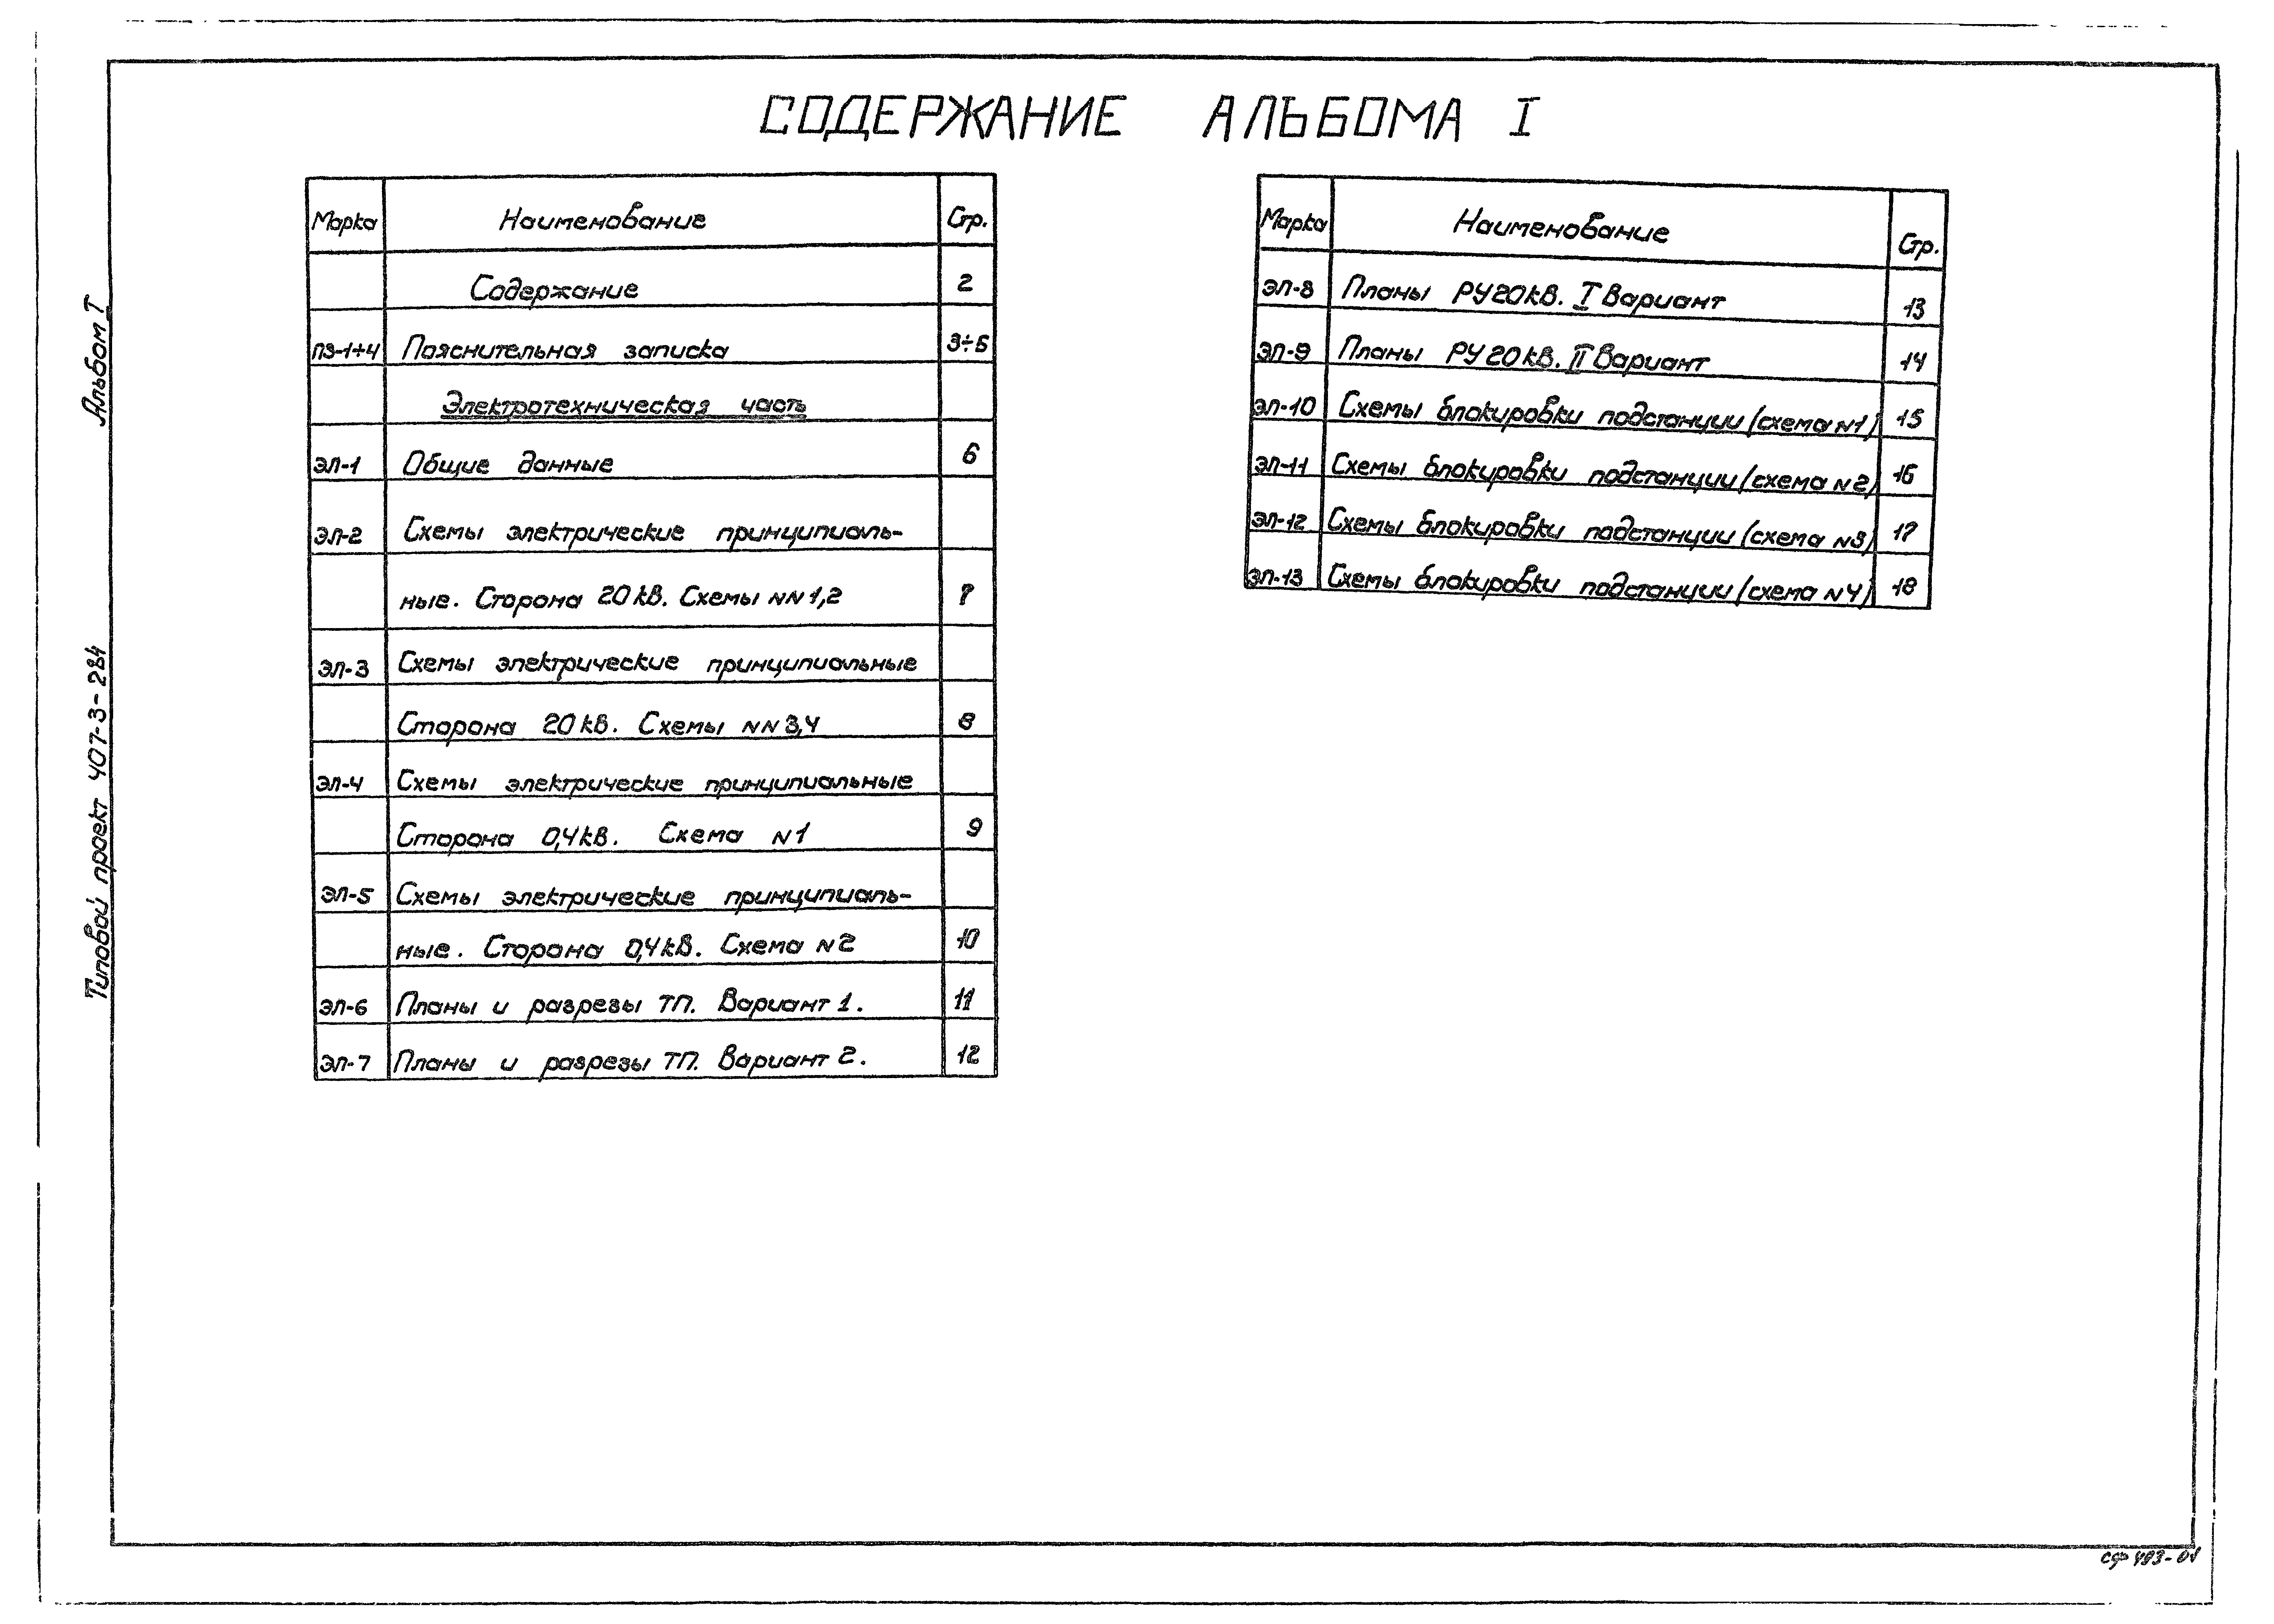 СОДЕРЖАНИЕ АЛЬБОМА I
Марка Наименование Стр.
Содержание 2
ПЗ-1÷4 Пояснительная записка 3÷5
Электротехническая часть
ЭЛ-1 Общие данные 6
ЭЛ-2 Схемы электрические принципиаль-
ные. Сторона 20кВ. Схемы NN1,2 7
ЭЛ-3 Схемы электрические принципиальные
Сторона 20кВ. Схемы NN3,4 8
ЭЛ-4 Схемы электрические принципиальные
Сторона 0,4кВ. Схема N1 9
ЭЛ-5 Схемы электрические принципиаль-
ные. Сторона 0,4кВ. Схема N2 10
ЭЛ-6 Планы и разрезы ТП. Вариант 1. 11
ЭЛ-7 Планы и разрезы ТП. Вариант 2. 12
Марка Наименование Стр.
ЭЛ-8 Планы РУ20кВ. I Вариант 13
ЭЛ-9 Планы РУ20кВ. II Вариант 14
ЭЛ-10 Схемы блокировки подстанции (схема N1) 15
ЭЛ-11 Схемы блокировки подстанции (схема N2) 16
ЭЛ-12 Схемы блокировки подстанции (схема N3) 17
ЭЛ-13 Схемы блокировки подстанции (схема N4) 18
Типовой проект 407-3-284 Альбом I
СФ 493-01